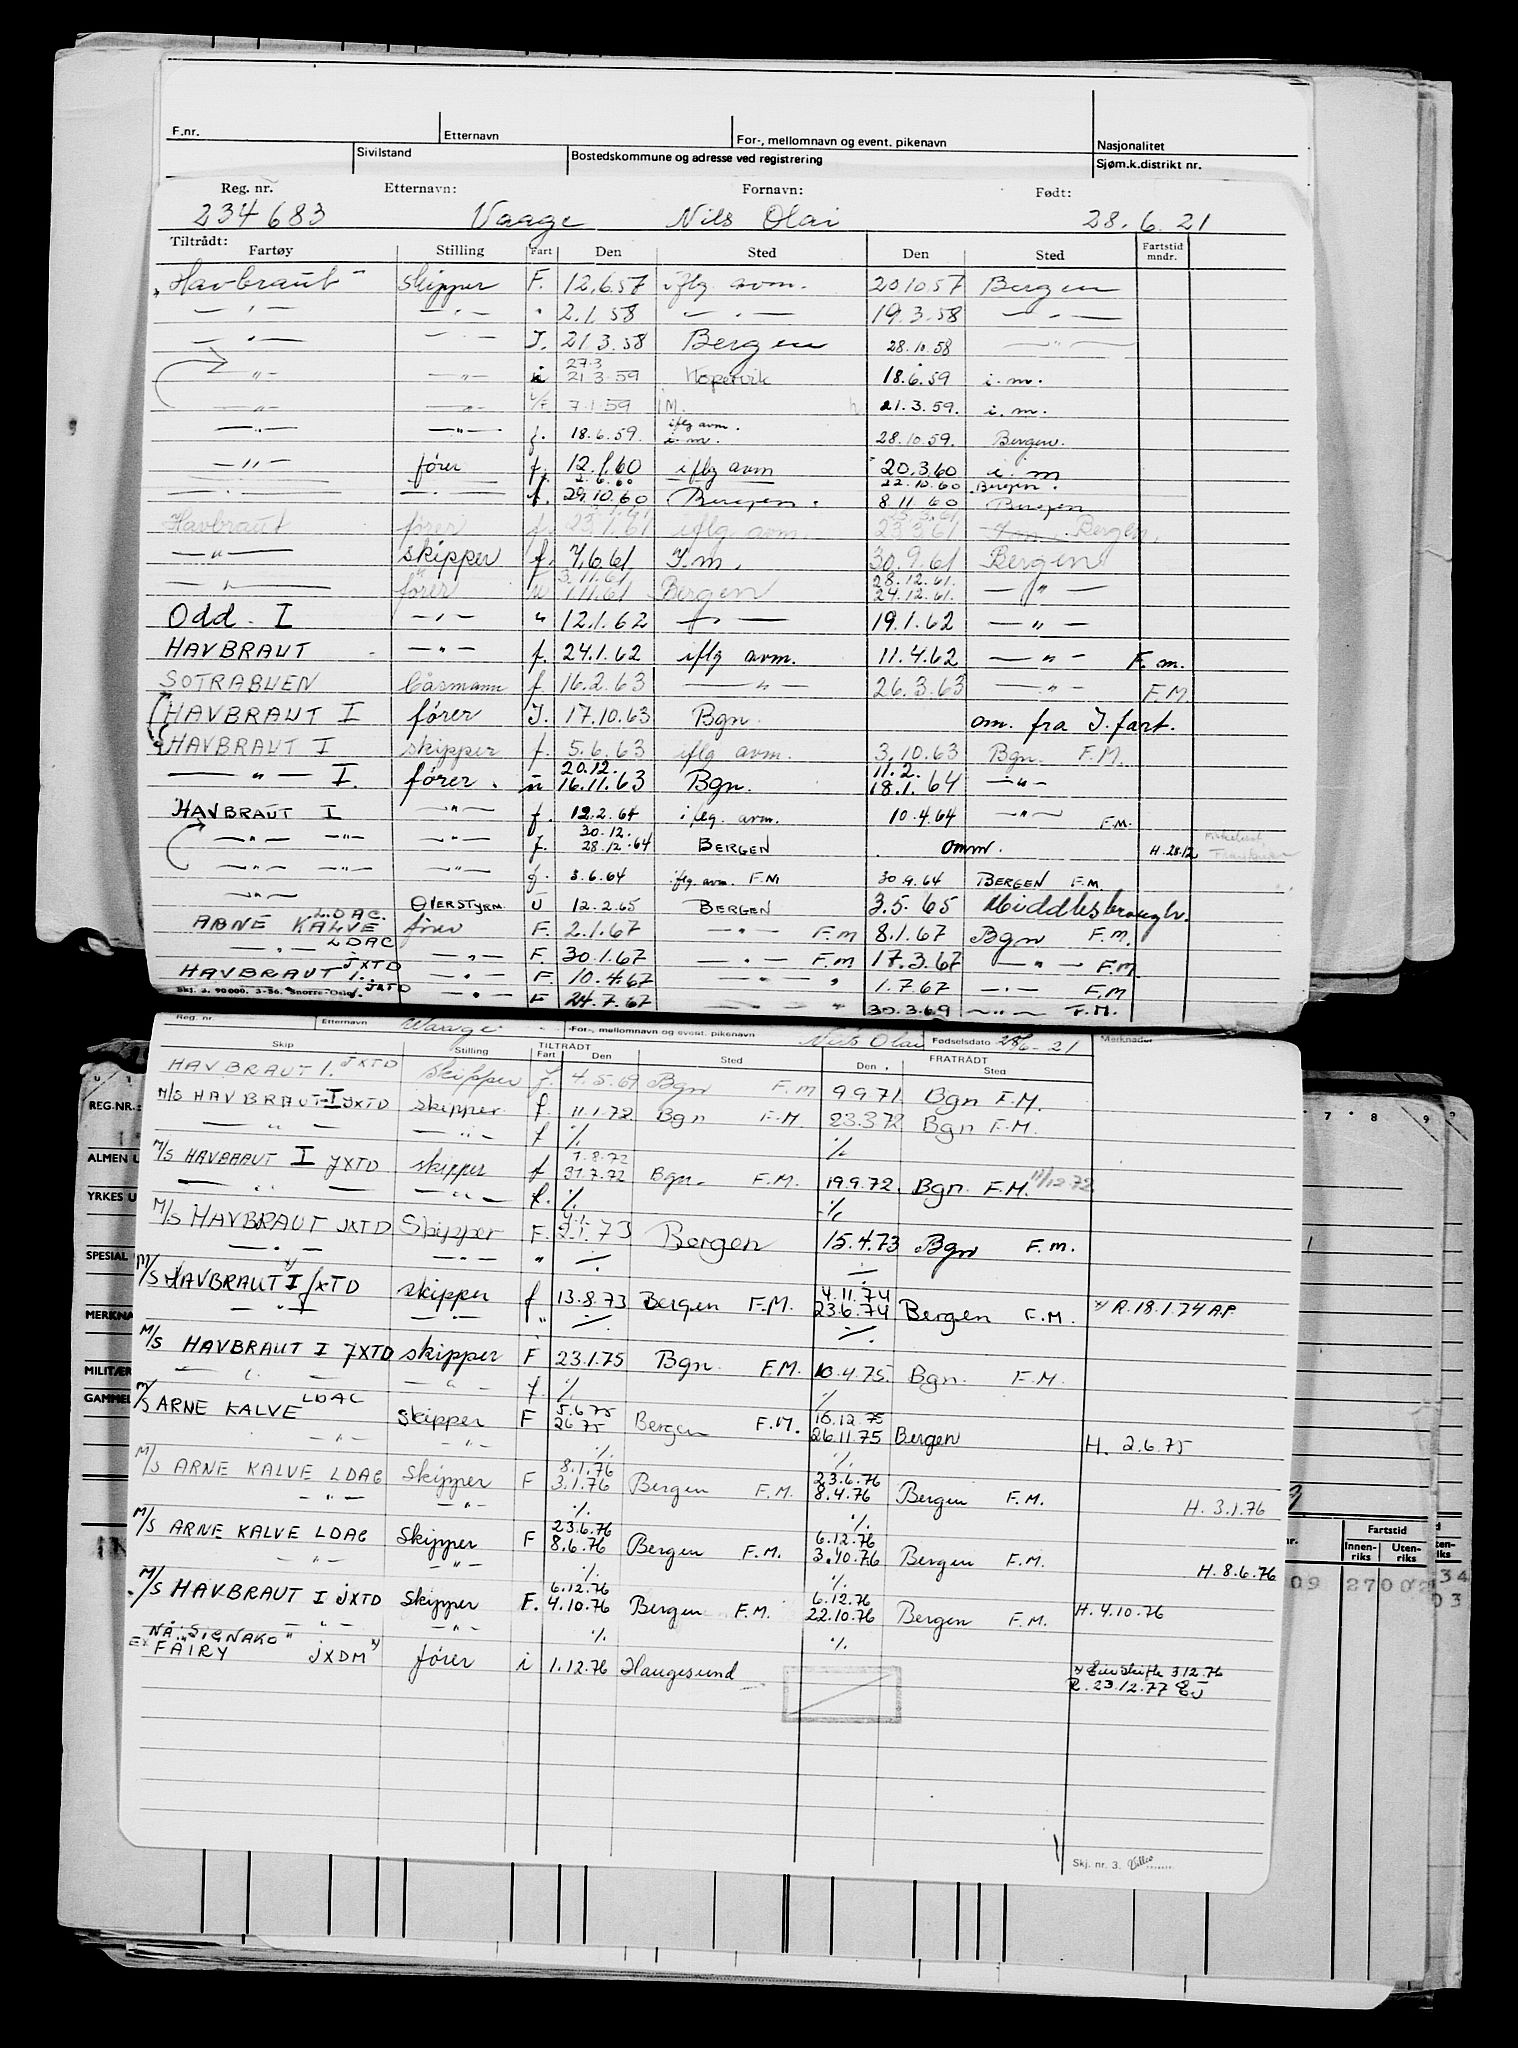 F.nr. Etternavn For-, mellomnavn og event. pikenavn Nasjonalitet
Sivilstand Bostedskommune og adresse ved registrering Sjøm.k.distrikt nr.
Reg. nr. Etternavn: Fornavn: Født:
234683 Vaage Nils Olai 28.6.21
Tiltrådt:
Fartøy Stilling Fart Den Sted Den Sted Fartstid mndr.
"Havbraut" skipper F. 12.6.57 iflg avm. 20.10.57 Bergen
— " — — " — " 2.1.58 — " — 19.3.58 — " —
— " — — " — I. 21.3.58 Bergen 28.10.58 — " —
27.3
— " — — " — i 21.3.59 Kopervik 18.6.59 i.m.
— " — — " — 7.1.59 I M. 21.3.59. i.m.
— " — — " — f. 18.6.59. iflg avm. i.m. 28.10.59. Bergen.
— " — fører f. 12.1.60 iflg avm 20.3.60 i.m
2.6.60 22.10.60 Bergen.
— " — — " — f. 29.10.60 Bergen. 8.11.60 Bergen
Havbraut fører f. 23.1.61 iflg. avm. 23.3.61 Bergen.
— " — skipper f. 7.6.61 I.m. 30.9.61 Bergen
3.11.61 28.12.61.
— " — fører u 1.11.61 Bergen 24.12.61. — " —
Odd I — " — " 12.1.62 — " — 19.1.62 — " —
HAVBRAUT — " — f. 24.1.62 iflg avm. 11.4.62 — " — F.m.
SOTRABUEN Båsmann f. 16.2.63 — " — 26.3.63 — " — F.M.
HAVBRAUT I fører I. 17.10.63 Bgn. om. fra I. fart.
HAVBRAUT I skipper f. 5.6.63 iflg avm. 3.10.63 Bgn. F.M.
20.12. 11.2.
— " — I. fører. u 16.11.63 Bgn. 18.1.64 — " —
HAVBRAUT I — " — f. 12.2.64 iflg. avm. 10.4.64 — " — F.M.
30.12.
— " — — " — — " — f. 28.12.64 BERGEN omm. H.28.12
— " — — " — — " — f. 3.6.64 iflg. avm. F.M 30.9.64 BERGEN F.M.
— " — OVERSTYRM. U 12.2.65 BERGEN 3.5.65 Middlesbrough.
ARNE KALVE LDAC. fører F. 2.1.67 — " — F.M 8.1.67 Bgn F.M.
— " — LDAC — " — F. 30.1.67 — " — F.M 17.3.67 — " — F.M.
HAVBRAUT I. JXTD — " — F. 10.4.67 — " — " 1.7.67 — " — F.M
— " — I. JXTD — " — F 24.7.67 — " — " 30.3.69 — " — F.M.
Skj. 3. 90000. 3-56. Snorre-Oslo.
Reg. nr. Etternavn Vaage For-, mellomnavn og event. pikenavn Nils Olai Fødselsdato 28/6-21 Merknader
Skip Stilling TILTRÅDT Fart Den Sted FRATRÅDT Den Sted
HAVBRAUT I. JXTD skipper f. 4.5.69 Bgn F.M 9.9.71. Bgn F.M.
M/S HAVBRAUT I JXTD skipper f. 11.1.72 Bgn F.M. 23.3.72 Bgn F.M.
— " — — " — f ./. ./.
1.8.72
M/S HAVBRAUT I JXTD skipper f 31.7.72 Bgn. F.M. 19.9.72. Bgn. F.M. 11/12-72
— " — — " — f. ./. ./.
M/S HAVBRAUT JXTD Skipper F. 2.1.73 Bergen 15.4.73 Bgn F.M.
— " — — " — " ./. ./.
4.11.74
M/S HAVBRAUT I JXTD skipper f 13.8.73 Bergen F.M. 23.6.74 Bergen F.M. x/ R.18.1.74 AP
— " — — " — " ./. ./.
M/S HAVBRAUT I JXTD skipper F 23.1.75 Bgn. F.M. 10.4.75. Bgn. F.M.
— " — — " — f. ./. ./.
5.6.75 16.12.75
M/S ARNE KALVE LDAC Skipper F 2.6.75 Bergen F.M. 26.11.75 Bergen H. 2.6.75
— " — — " — ./. ./.
8.1.76 23.6.76
M/S ARNE KALVE LDAG Skipper F 3.1.76 Bergen F.M. 8.4.76 Bergen F.M. H. 3.1.76
— " — — " — ./. ./.
23.6.76 6.12.76
M/S ARNE KALVE LDAG Skipper F 8.6.76 Bergen F.M. 3.10.76 Bergen F.M. H. 8.6.76
— " — — " — ./. ./.
6.12.76 6.12.76
M/S HAVBRAUT I JXTD Skipper F. 4.10.76 Bergen F.M. 22.10.76 Bergen F.M. H. 4.10.76
— " — — " — ./. ./.
NÅ "SIGNAKO"
EX FAIRY JXDM x/ fører i 1.12.76 Haugesund x/ Eierskifte 3.12.76
R. 23.12.77 EJ
Skj. nr. 3.
REG.NR.:
ALMEN U
YRKES U
SPESIAL
MERKNA
MILITÆR
GAMMEL
7 8 9
Fartstid
Innen-riks Uten-riks
09 27002 34
03